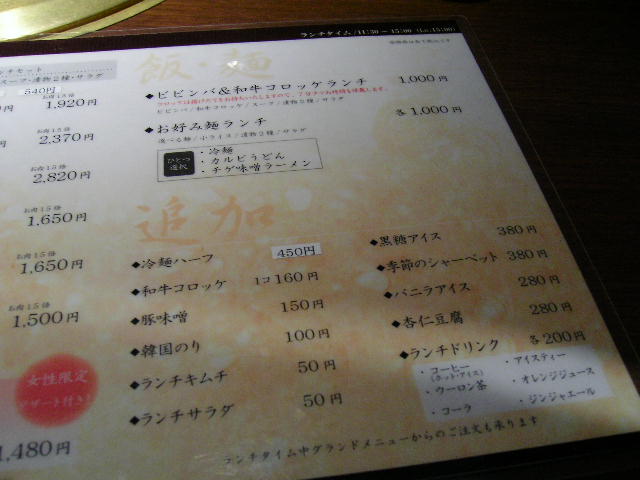 ランチタイム/11:30～15:00 (Lo.15:00)
ンチセット
スープ・漬物2種・サラダ
540円
お肉1.5倍
1,920円
お肉1.5倍
2,370円
お肉1.5倍
2,820円
お肉1.5倍
1,650円
お肉1.5倍
1,650円
お肉1.5倍
1,500円
女性限定
デザート付き!
1,480円
飯・麺
◆ビビンバ&和牛コロッケランチ 1,000円
ビビンバ/和牛コロッケ/スープ/漬物2種/サラダ
◆お好み麺ランチ 各1,000円
選べる麺/小ライス/漬物2種/サラダ
ひとつ選択
・冷麺
・カルビうどん
・チゲ味噌ラーメン
追加
◆冷麺ハーフ 450円
◆和牛コロッケ 1コ160円
◆豚味噌 150円
◆韓国のり 100円
◆ランチキムチ 50円
◆ランチサラダ 50円
◆黒糖アイス 380円
◆季節のシャーベット 380円
◆バニラアイス 280円
◆杏仁豆腐 280円
◆ランチドリンク 各200円
・コーヒー
(ホット・アイス)
・ウーロン茶
・コーラ
・アイスティー
・オレンジジュース
・ジンジャエール
ランチタイム中グランドメニューからのご注文も承ります